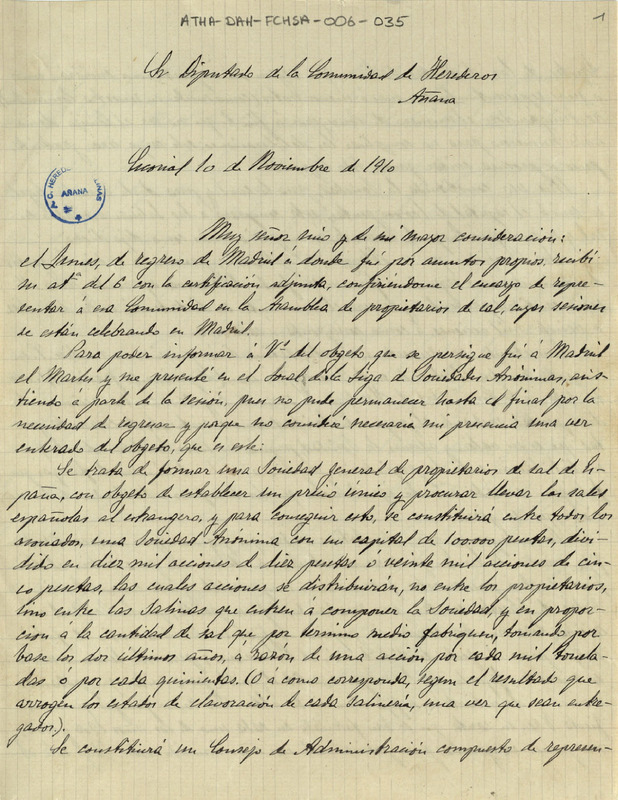 ATHA-DAH-FCHSA-006-035
1
Sr Diputado de la Comunidad de Herederos
Añana
Escorial 10 de Noviembre de 1910
C. HEREDEROS SALINAS
AÑANA
Muy señor mio y de mi mayor consideración:
el Lunes, de regreso de Madrid á donde fuí por asuntos propios, recibí
su atª del 6 con la certificación adjunta, confiriéndome el encargo de repre-
sentar á esa Comunidad en la Asamblea de propietarios de sal, cuyas sesiones
se están celebrando en Madrid.
Para poder informar á Vd. del obgeto que se persigue fuí á Madrid
el Martes y me presenté en el local de la Liga de Sociedades Anónimas, asis-
tiendo a parte de la sesión, pues no pude permanecer hasta el final por la
necesidad de regresar y porque no consideré necesaria mi presencia una vez
enterado del obgeto, que es este:
Se trata de formar una Sociedad general de propietarios de sal de Es-
paña, con obgeto de establecer un précio único y procurar llevar las sales
españolas al estrangero, y para conseguir esto, se constituirá entre todos los
asociados, una Sociedad Anónima con un capital de 100.000 pesetas, divi-
dido en diez mil acciones de diez pesetas ó veinte mil acciones de cin-
co pesetas, las cuales acciones se distribuirán, no entre los propietarios,
sino entre las Salinas que entren a componer la Sociedad, y en propor-
cion a la cantidad de sal que por termino medio fabriquen, tomando por
base los dos últimos años, a razón de una acción por cada mil tonela-
das o por cada quinientas. (O á como corresponda, segun el resultado que
arrogen los estados de elavoración de cada Salinería, una vez que sean entre-
gados.).
Se constituirá un Consejo de Administración compuesto de represen-